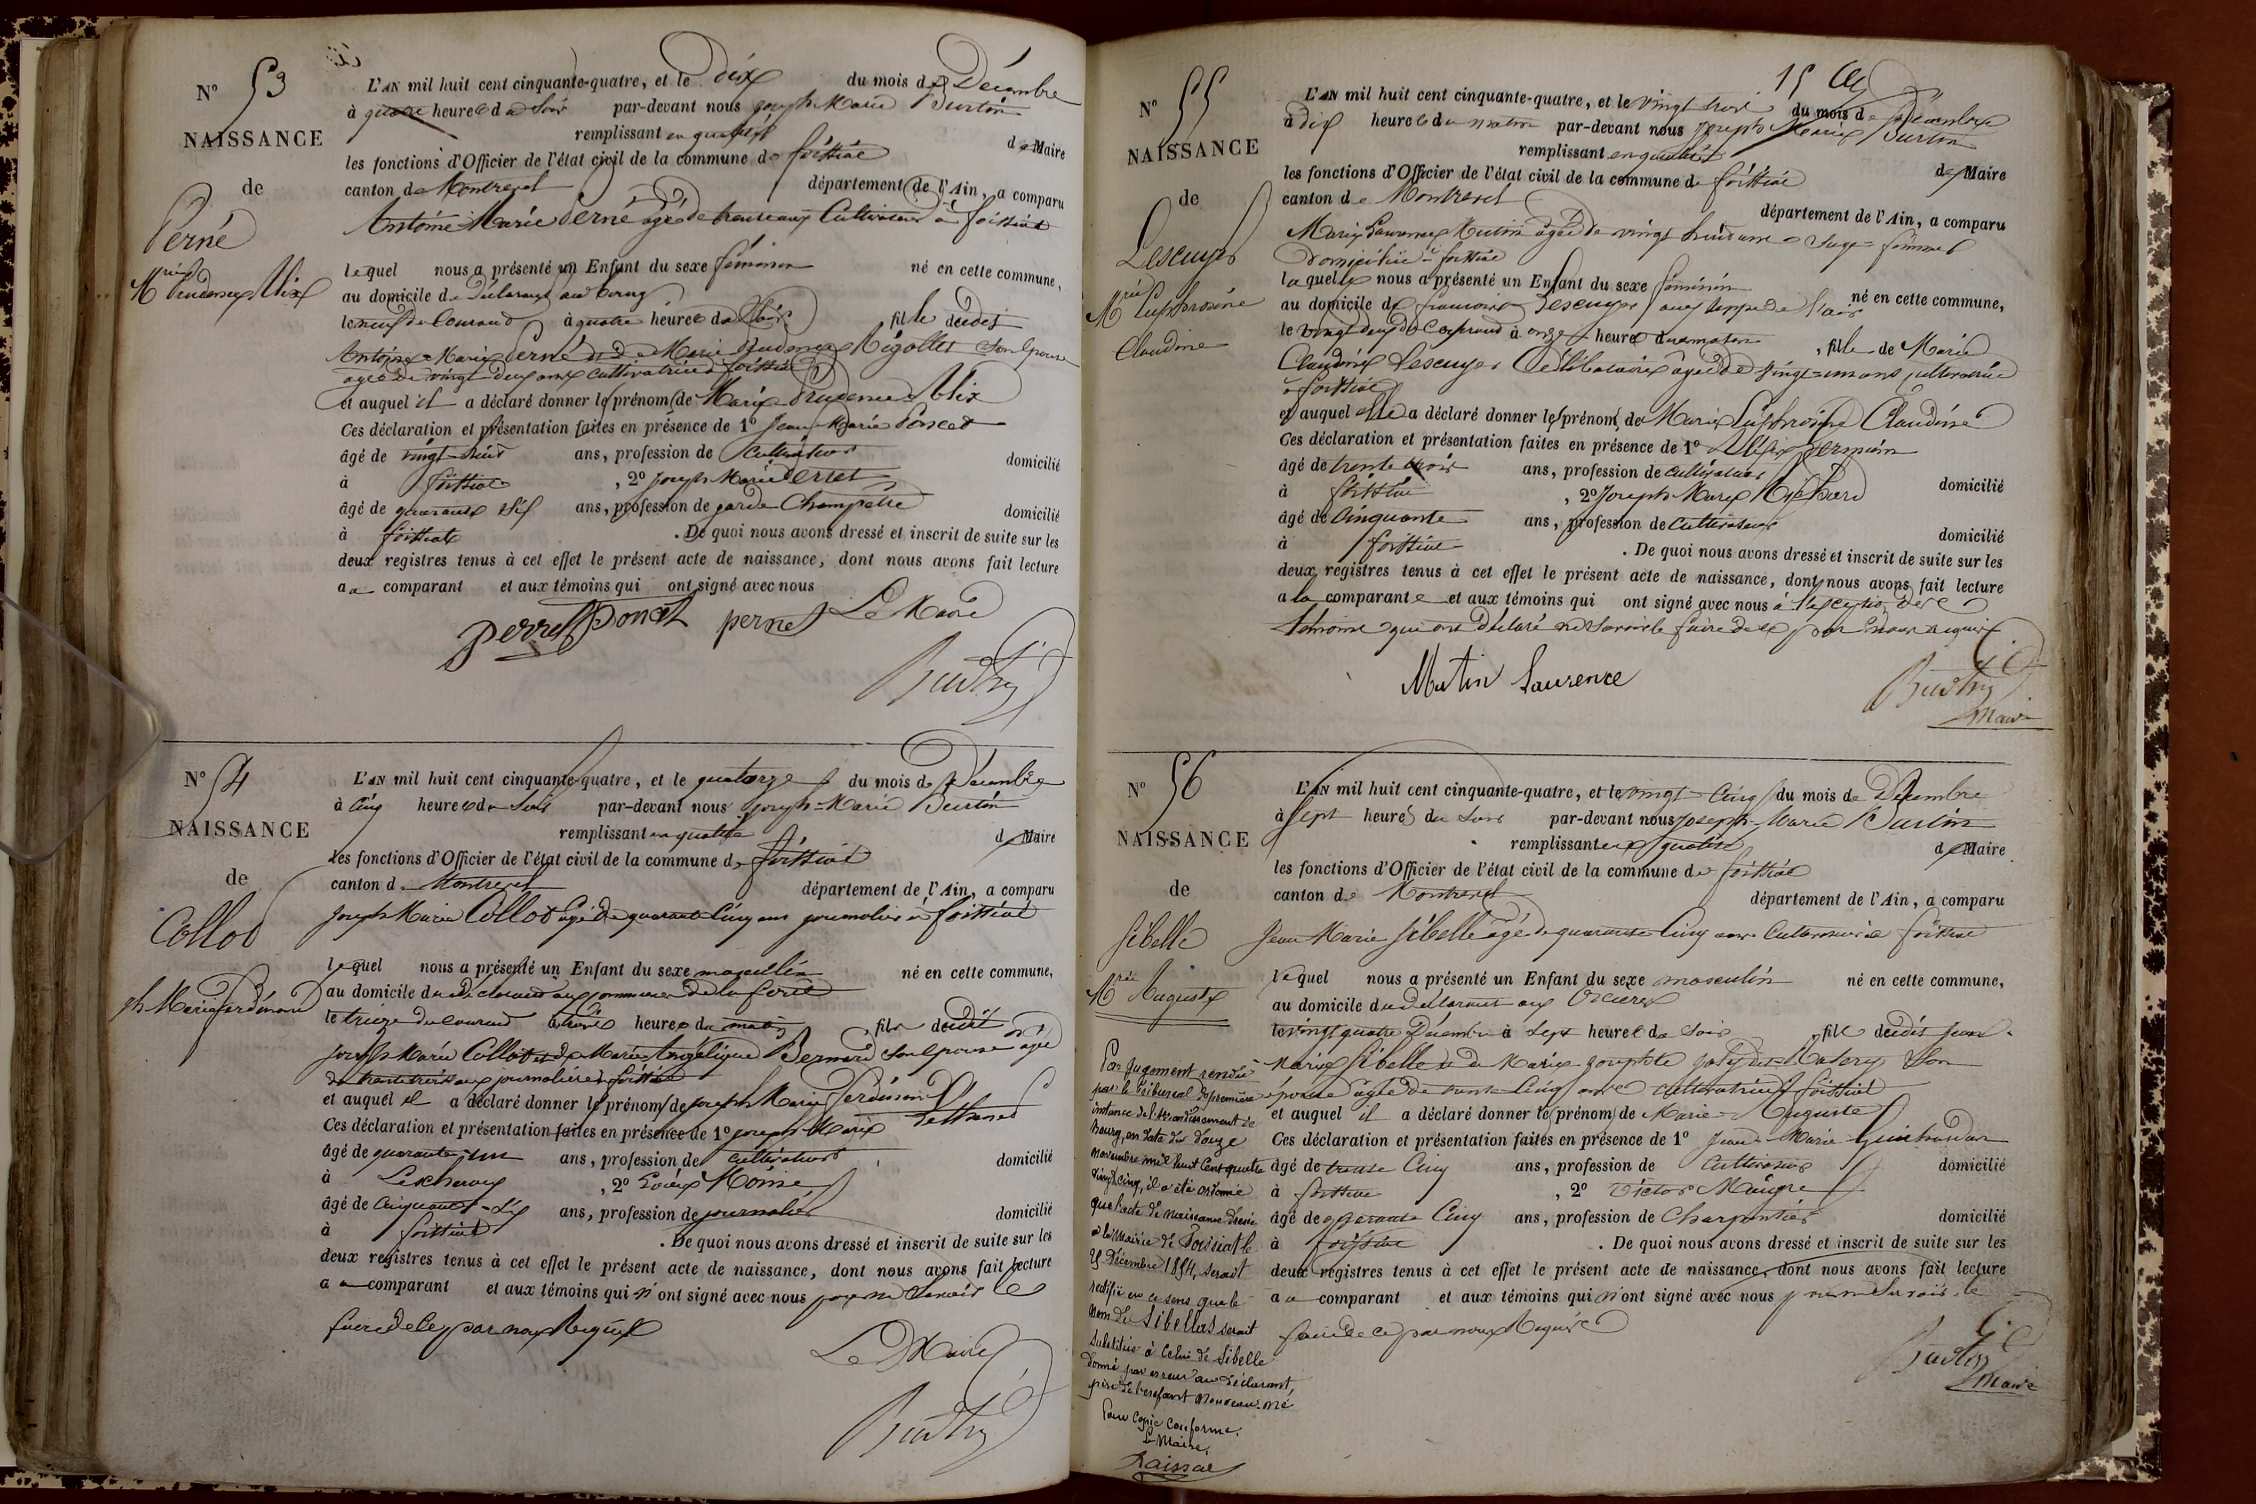 N° 53
NAISSANCE
de
Perné
Mie Prudence Alix
L'AN mil huit cent cinquante-quatre, et le dix du mois de Décembre
à quatre heures du Soir par-devant nous Joseph Marie Burtin
remplissant en qualité de Maire
les fonctions d'Officier de l'état civil de la commune de foissiat
canton de Montrevel département de l'Ain, a comparu
Antoine Marie Perné âgé de trente ans Cultivateur à foissiat
lequel nous a présenté un Enfant du sexe féminin né en cette commune,
au domicile du déclarant au bourg
le neuf du Courant à quatre heures du Soir, fille de
Antoine Marie Perné et de Marie Prudence Rigollet Son Epouse
agée de vingt deux ans cultivatrice à foissiat
et auquel il a déclaré donner les prénoms de Marie Prudence Alix
Ces déclaration et présentation faites en présence de 1° Jean Marie Poncet
âgé de vingt ans, profession de Cultivateur domicilié
à foissiat, 2° Joseph Marie Perret
âgé de quarante Six ans, profession de garde Champêtre domicilié
à foissiat. De quoi nous avons dressé et inscrit de suite sur les
deux registres tenus à cet effet le présent acte de naissance, dont nous avons fait lecture
au comparant et aux témoins qui ont signé avec nous
Perret Poncet pernet Le Maire
Burtin
N° 54
NAISSANCE
de
Collot
ph Marie ferdinand
L'AN mil huit cent cinquante-quatre, et le quatorze du mois de Décembre
à Cinq heures du Soir par-devant nous Joseph-Marie Burtin
remplissant en qualité de Maire
les fonctions d'Officier de l'état civil de la commune de foissiat
canton de Montrevel département de l'Ain, a comparu
Joseph Marie Collot âgé de quarante Cinq ans journalier à foissiat
lequel nous a présenté un Enfant du sexe masculin né en cette commune,
au domicile du déclarant aux de la foret
le treize du courant à trois heures du matin, fils de
Joseph Marie Collot et de Marie Angélique Bernard Son Epouse âgée
de trente trois ans journalière à foissiat
et auquel il a déclaré donner les prénoms de Joseph Marie ferdinand
Ces déclaration et présentation faites en présence de 1° Joseph Marie
âgé de quarante-un ans, profession de cultivateur domicilié
à Lescheroux, 2° Moine
âgé de Cinquante-Six ans, profession de journalier domicilié
à foissiat. De quoi nous avons dressé et inscrit de suite sur les
deux registres tenus à cet effet le présent acte de naissance, dont nous avons fait lecture
au comparant et aux témoins qui n'ont signé avec nous pour ne Savoir le
faire de ce par nous Requis
Le Maire
Burtin
15
N° 55
NAISSANCE
de
Lescuyer
Mie Euphrosine
Claudine
L'AN mil huit cent cinquante-quatre, et le vingt trois du mois de Décembre
à dix heures du matin par-devant nous Joseph Marie Burtin
remplissant en qualité de Maire
les fonctions d'Officier de l'état civil de la commune de foissiat
canton de Montrevel département de l'Ain, a comparu
Marie Laurence Mutin âgée de vingt huit ans Sage-femme
domiciliée à foissiat
laquelle nous a présenté un Enfant du sexe féminin né en cette commune,
au domicile de francois Lescuyer
le vingt deux du Courant à onze heures du matin, fille de Marie
Claudine Lescuyer Célibataire âgée de vingt-un ans cultivatrice
à foissiat
et auquel elle a déclaré donner les prénoms de Marie Euphrosine Claudine
Ces déclaration et présentation faites en présence de 1° Alexis
âgé de trente trois ans, profession de cultivateur domicilié
à foissiat, 2° Joseph Marie
âgé de Cinquante ans, profession de cultivateur domicilié
à foissiat. De quoi nous avons dressé et inscrit de suite sur les
deux registres tenus à cet effet le présent acte de naissance, dont nous avons fait lecture
a la comparante et aux témoins qui ont signé avec nous à l'exception des
témoins qui ont déclaré ne Savoir le faire de ce par nous requis
Mutin Laurence
Burtin
Maire
N° 56
NAISSANCE
de
Sibelle
Mie Auguste
L'AN mil huit cent cinquante-quatre, et le vingt-Cinq du mois de Décembre
à Sept heures du Soir par-devant nous Joseph-Marie Burtin
remplissant en qualité de Maire
les fonctions d'Officier de l'état civil de la commune de foissiat
canton de Montrevel département de l'Ain, a comparu
Jean Marie Sibelle âgé de quarante Cinq ans Cultivateur à foissiat
lequel nous a présenté un Enfant du sexe masculin né en cette commune,
au domicile du déclarant aux
le vingt quatre Décembre à Sept heures du Soir, fils de Jean-
Marie Sibelle et de Marie Josephte Son
épouse âgée de trente Cinq ans cultivatrice à foissiat
et auquel il a déclaré donner les prénoms de Marie-Auguste
Ces déclaration et présentation faites en présence de 1° Jean-Marie
âgé de trente Cinq ans, profession de Cultivateur domicilié
à foissiat, 2° Victor
âgé de quarante Cinq ans, profession de Charpentier domicilié
à foissiat. De quoi nous avons dressé et inscrit de suite sur les
deux registres tenus à cet effet le présent acte de naissance, dont nous avons fait lecture
au comparant et aux témoins qui n'ont signé avec nous pour ne Savoir le
faire de ce par nous Requis
Burtin
Maire
Par Jugement rendu
par le tribunal de première
instance de l'arrondissement de
Bourg, en date du douze
novembre mil huit cent quatre
vingt cinq, il a été ordonné
que l'acte de naissance dressé
à la Mairie de Foissiat le
25 Décembre 1854, serait
rectifié en ce sens que le
nom de Sibellas serait
substitué à celui de Sibelle
donné par erreur au déclarant,
père de l'enfant nouveau-né
Pour Copie Conforme.
Le Maire,